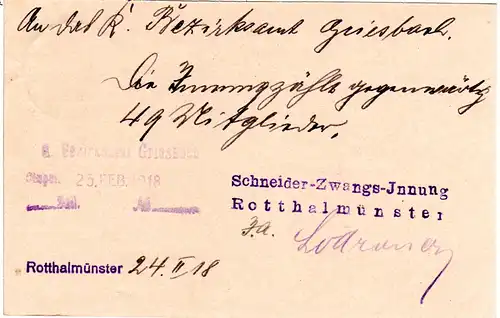 An das K. Bezirksamt Griesbach.
Die Innung zählt gegenwärtig
49 Mitglieder.
K. Bezirksamt Griesbach
Einget. 25. FEB. 1918
Schneider-Zwangs-Jnnung
Rotthalmünster
Rotthalmünster 24. II 18